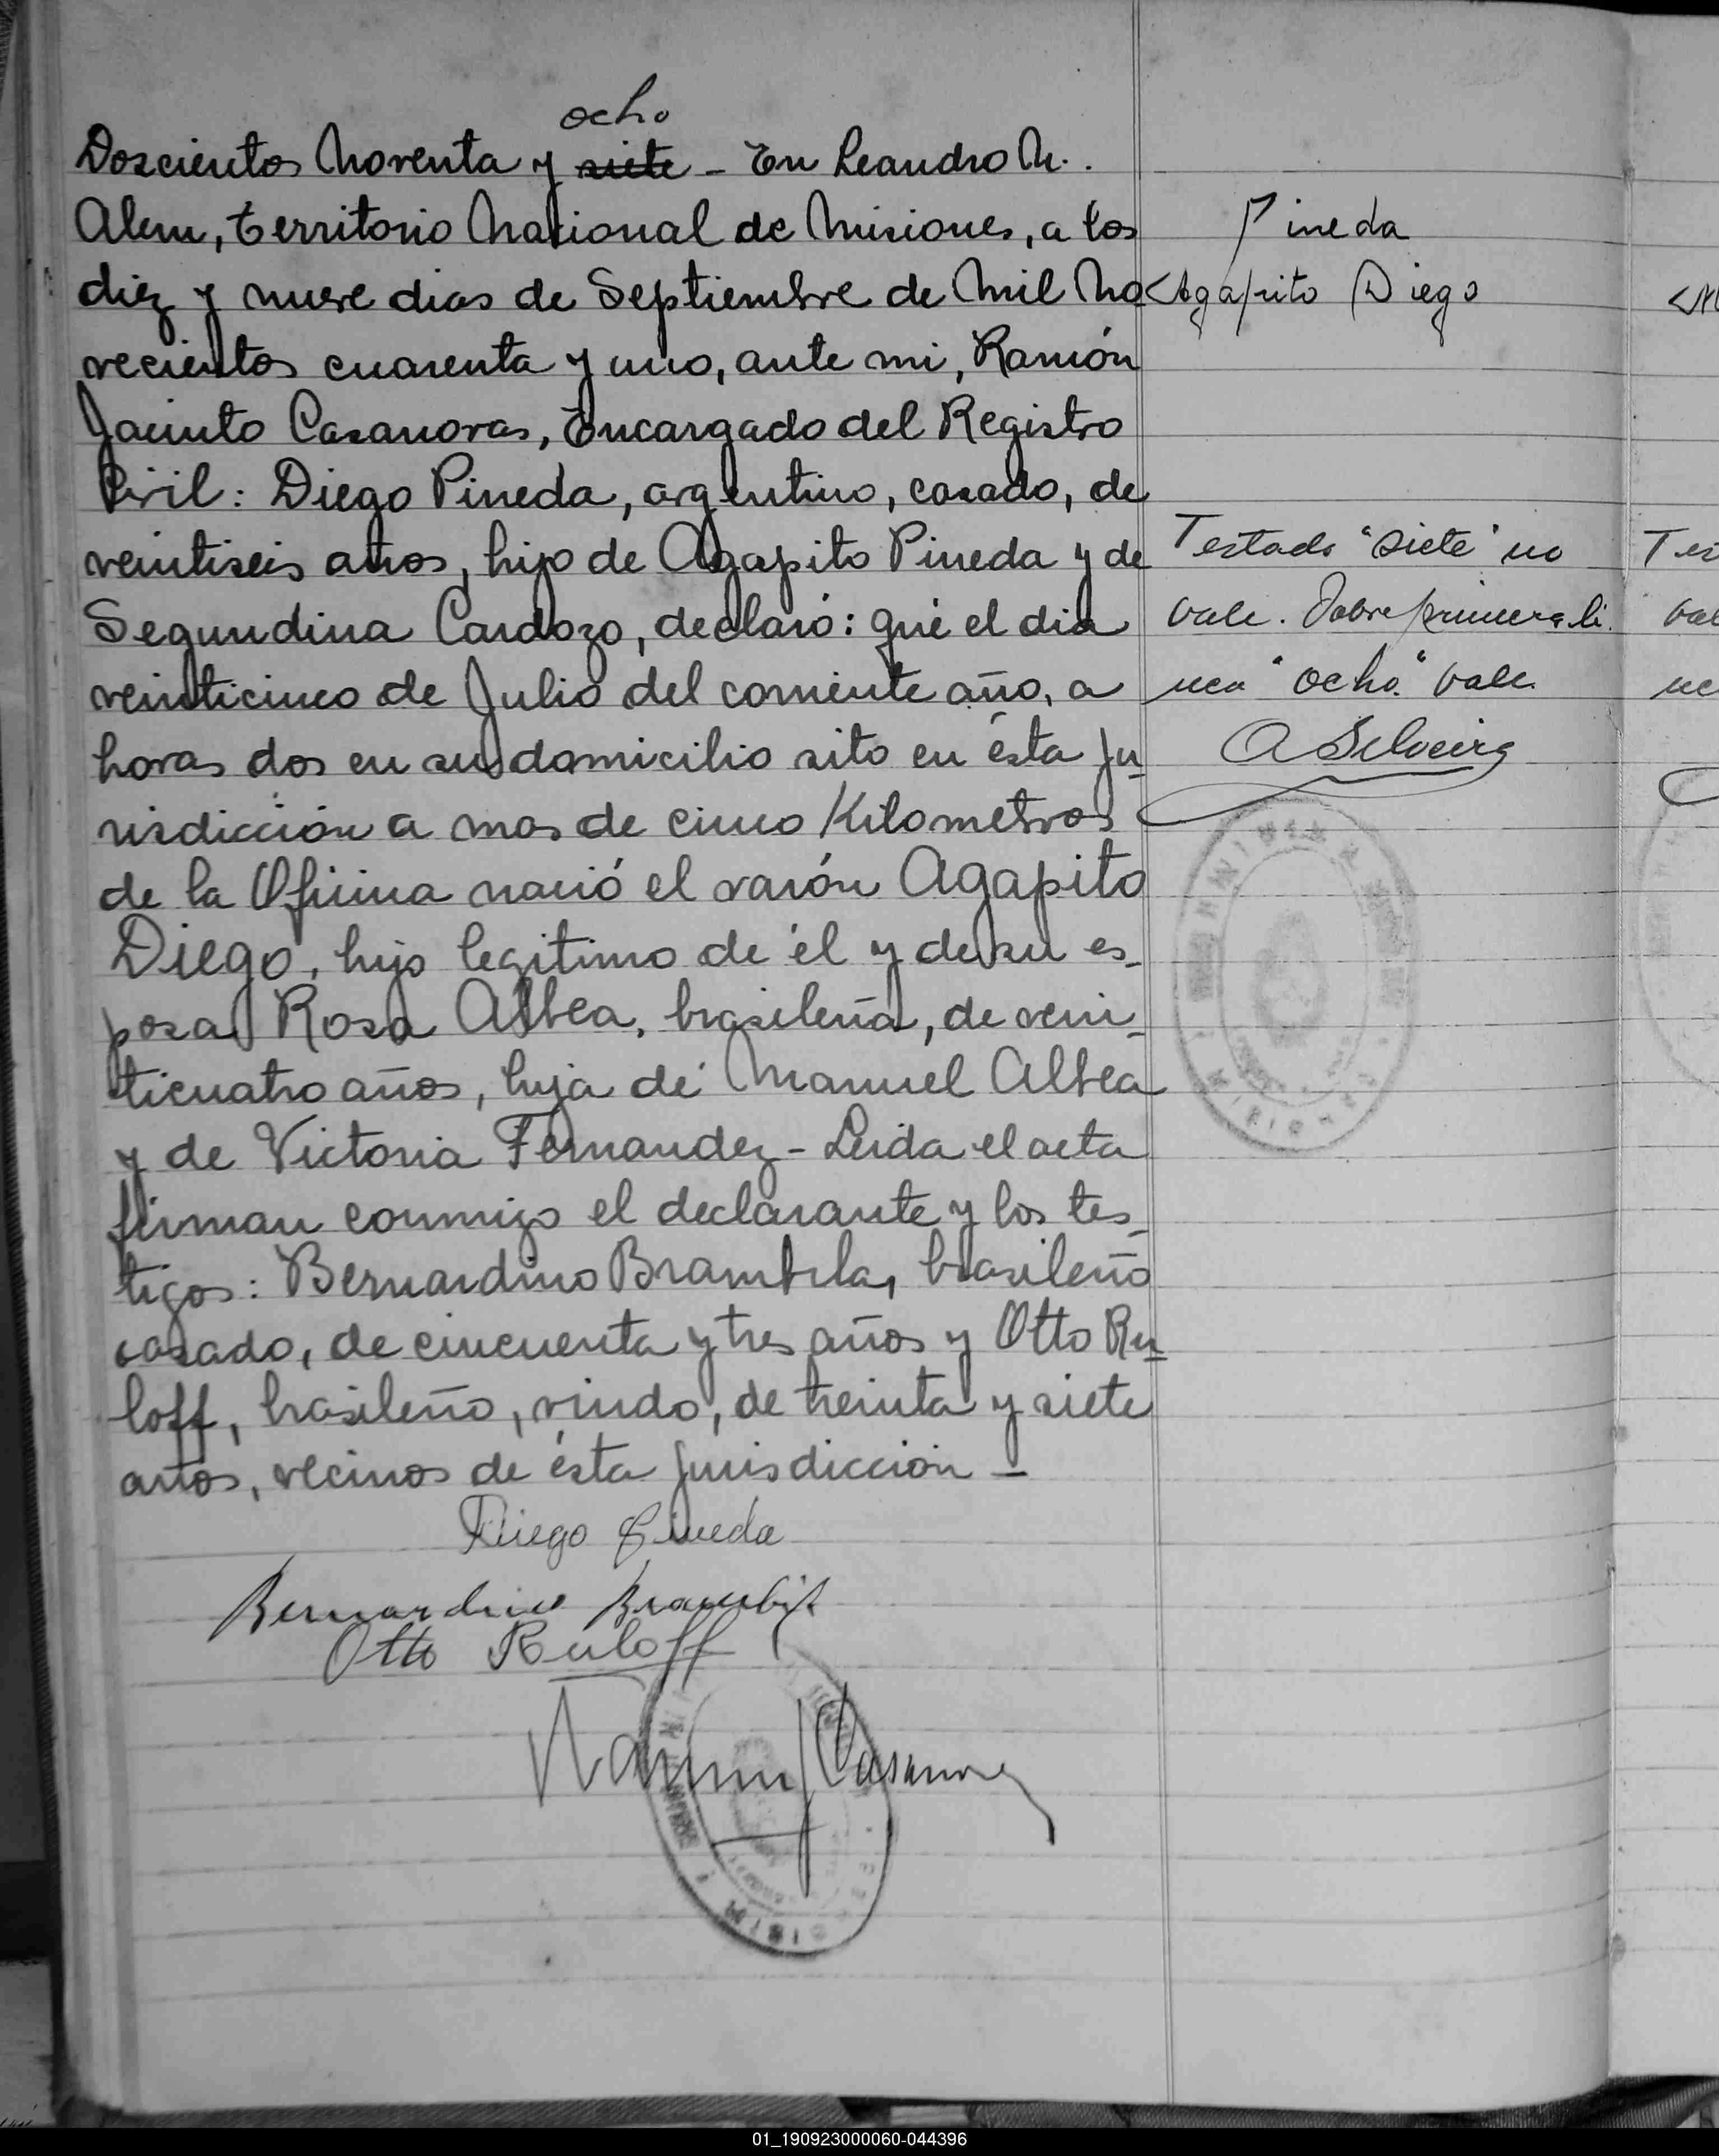 ocho
Doscientos Noventa y siete - En Leandro N.
Alem, Territorio Nacional de Misiones, a los
diez y nueve dias de Septiembre de Mil No
vecientos cuarenta y uno, ante mi, Ramón
Jacinto Casanovas, Encargado del Registro
Civil: Diego Pineda, argentino, casado, de
veintiseis años, hijo de Agapito Pineda y de
Segundina Cardozo, declaró: que el dia
veinticinco de Julio del corriente año, a
horas dos en su domicilio sito en ésta Ju_
risdicción a mas de cinco Kilometros
de la Oficina nació el varón Agapito
Diego, hijo legitimo de él y de su es_
posa Rosa Albea, brasileña, de vein_
ticuatro años, hija de Manuel Albea
y de Victoria Fernandez - Leida el acta
firman conmigo el declarante y los tes_
tigos: Bernardino Brambila, brasileño
casado, de cincuenta y tres años y Otto Ru_
loff, brasileño, viudo, de treinta y siete
años, vecinos de ésta Jurisdicción -
Diego Pineda
Bernardino
Otto Ruloff
Ramon J Casanovas
Pineda
Agapito Diego
Testado "siete" no
vale. Sobre primera li.
nea "ocho" vale.
A Silveira
Tes
val
ne
01_190923000060-044396